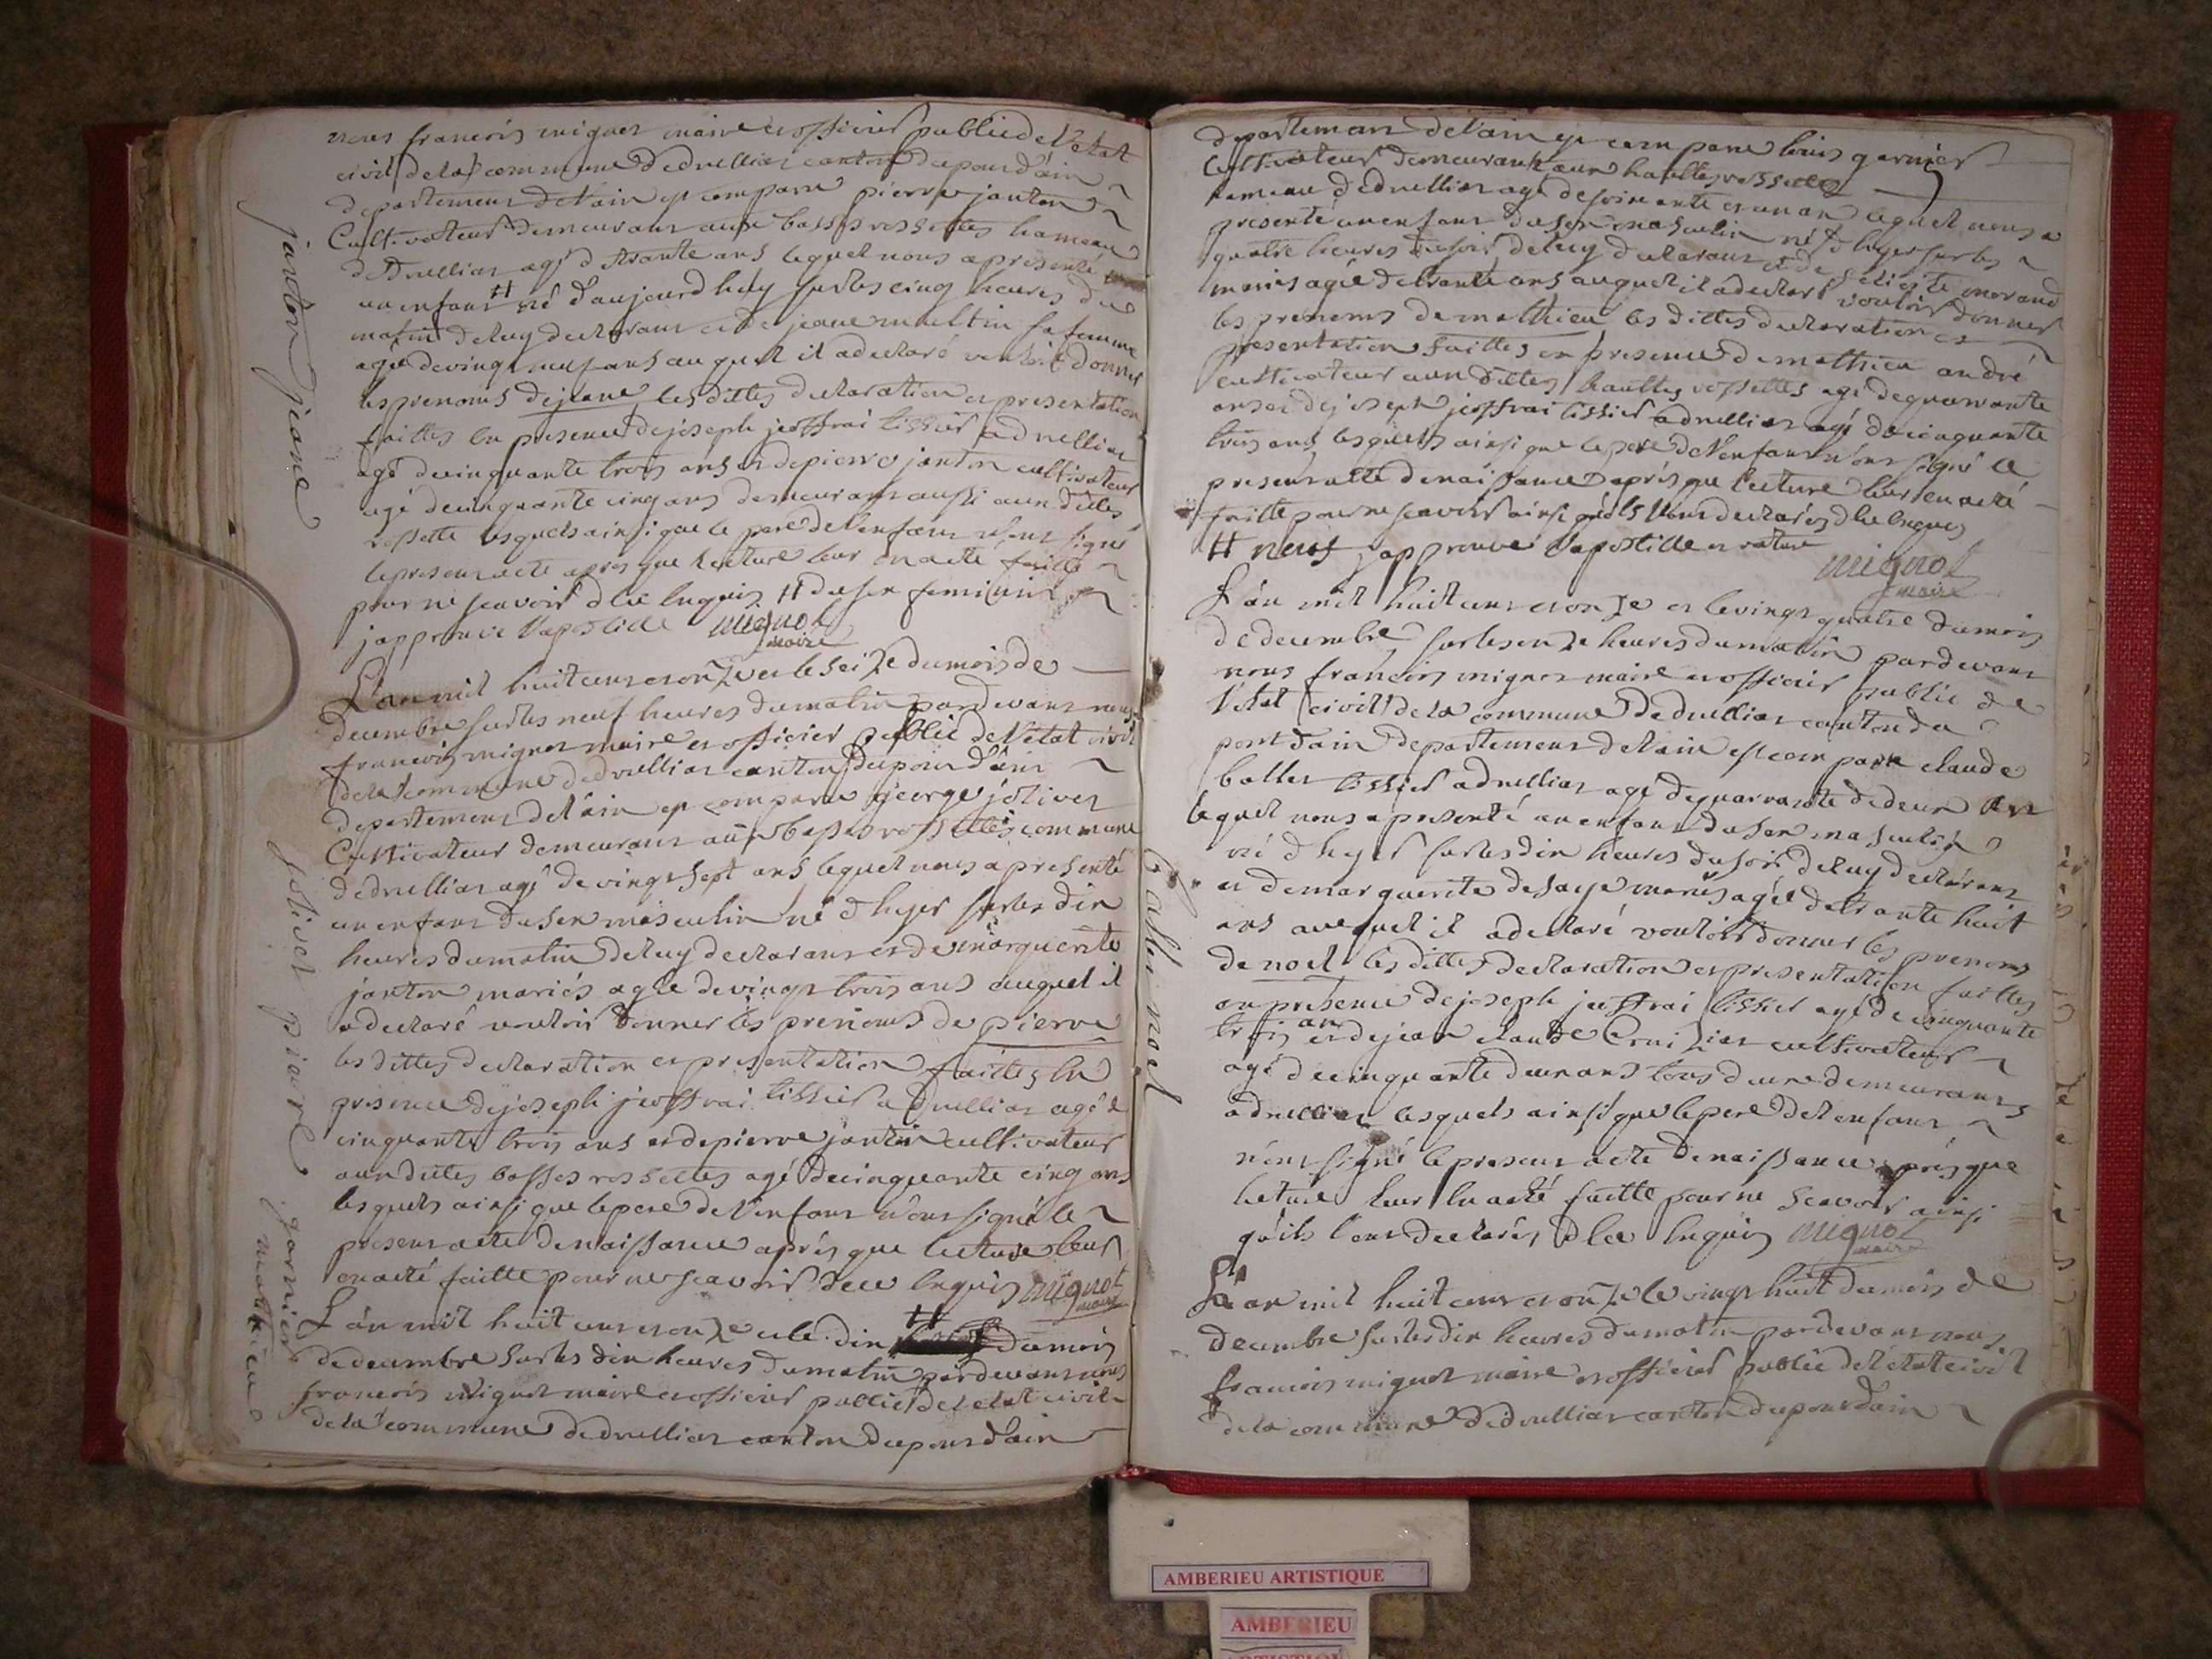 nous francois mignot maire et officier public de l'etat
civil de la commune de druilliat canton du pont d'ain
departement de l'ain est comparu pierre janton
Cultivateur demeurant aux basses rossettes hameau
de druillat agé de trante ans lequel nous a presenté
un enfant # né d'aujourd huy sur les cinq heures du
matin de luy declarant et de jeane sa femme
agée de vingt neuf ans auquel il a declaré vouloir donner
les prenoms de jeane les dittes declaration et presentation
faittes en presence de joseph jeoffrai tissier a druilliat
agé de cinquante trois ans et de pierre janton cultivateur
agé de cinquante cinq ans demeurant aussi aux dittes
rossette lesquels ainsi que le pere de l'enfant n'ont signé
le present acte apres que lecture leur en a été faitte
pour ne scavoir de ce enquis # du sex feminin
j'approuve l'apostille mignot
maire
L'an mil huit cent et onze et le seize du mois de
decembre sur les neuf heures du matin pardevant nous
francois mignot maire et officier public de l'état civil
de la commune de druilliat canton du pont d'ain
departement de l'ain est comparu george jolivet
Cultivateur demeurant aux basses rossettes commune
de druilliat agé de vingt sept ans lequel nous a presenté
un enfant du sex masculin né d'hyer sur les dix
heures du matin de luy declarant et de marguerite
janton mariés agée de vingt trois ans auquel il
a declaré vouloir donner les prenoms de pierre
les dittes declaration et presentation faittes en
presence de joseph jeoffrai tissier a druilliat agé de
cinquante trois ans et de pierre janton cultivateur
aux dittes basses rossettes agé de cinquante cinq ans
lesquels ainsi que le pere de l'enfant n'ont signé le
present acte de naissance aprés que lecture leur
en a été faitte pour ne scavoir de ce enquis mignot
maire
L'an mil huit cent et onze et le dix # du mois
de decembre sur les dix heures du matin pardevant nous
francois mignot maire et officier public de l'etat civil
de la commune de druilliat canton du pont d'ain
janton jeane
jolivet piere
garnier
mathieu
departement de l'ain est comparu louis garnier
Cultivateur demeurant aux hauttes rossettes
hameau de druilliat agé de soixante et un an lequel nous a
presenté un enfant du sex masculin né d'hyer sur les
quatre heures du soir de luy declarant et de morand
mariés agée de trante ans auquel il a declaré vouloir donner
les prenoms de mathieu les dittes declaration et
presentation faittes en presence de mathieu andré
cultivateur aux dittes hauttes rossettes agé de quarante
ans et de joseph jeoffrai tissier a druilliat agé de cinquante
trois ans lesquels ainsi que le pere de l'enfant n'ont signé le
present acte de naissance aprés que lecture leur en a été
faitte pour ne scavoir ainsi qu'ils l'ont declarés de ce enquis
# neuf j'approuve l'apostille et rature
mignot
maire
L'an mil huit cent et onze et le vingt quatre du mois
de decembre sur les onze heures du matin pardevant
nous francois mignot maire et officier public de
l'état civil de la commune de druilliat canton du
pont d'ain departement de l'ain est comparu claude
ballet tissier a druilliat agé de quarante deux ans
lequel nous a presenté un enfant du sex masculin
né d'hyer sur les dix heures du soir de luy declarant
et de marguerite mariés agée de trante huit
ans auquel il a declaré vouloir donner les prenoms
de noel les dittes declaration et presentation faittes
en presence de joseph jeoffrai tissier agé de cinquante
trois ans et de jean claude cultivateur
agé de cinquante deux ans tous deux demeurants
a druilliat lesquels ainsi que le pere de l'enfant
n'ont signé le present acte de naissance aprés que
lecture leur en a été faitte pour ne scavoir ainsi
qu'ils l'ont declarés de ce enquis mignot
maire
L'an mil huit cent et onze le vingt huit du mois de
decembre sur les dix heures du matin pardevant nous
francois mignot maire et officier public de l'état civil
de la commune de druilliat canton du pont d'ain
ballet noel
AMBERIEU ARTISTIQUE
AMBERIEU
ARTISTIQUE